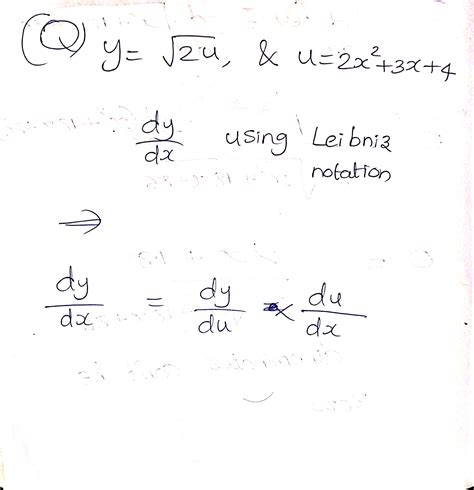 (Q) y = √2u, & u = 2x²+3x+4
dy/dx using Leibniz
notation
⇒
dy/dx = dy/du × du/dx